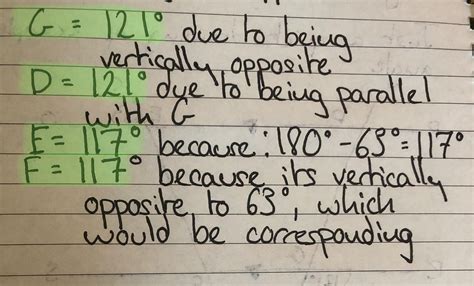 G = 121° due to being
vertically opposite
D = 121° due to being parallel
with G
E = 117° because: 180° - 63° = 117°
F = 117° because its vertically
opposite to 63°, which
would be corresponding